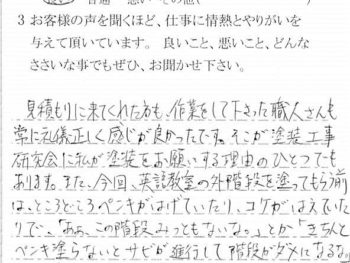 普通 悪い その他(
3 お客様の声を聞くほど、仕事に情熱とやりがいを
与えて頂いています。 良いこと、悪いこと、どんな
ささいな事でもぜひ、お聞かせ下さい。
見積もりに来てくれた方も、作業をして下さった職人さんも
常に礼儀正しく感じが良かったです。そこが塗装工事
研究会に私が塗装をお願いする理由のひとつでも
あります。また、今回、英語教室の外階段を塗ってもらう前
は、ところどころペンキがはげていたり、コケがはえていた
りで、「あぁ、この階段みっともないな。」とか「きちんと
ペンキ塗らないとサビが進行して階段がダメになるな。